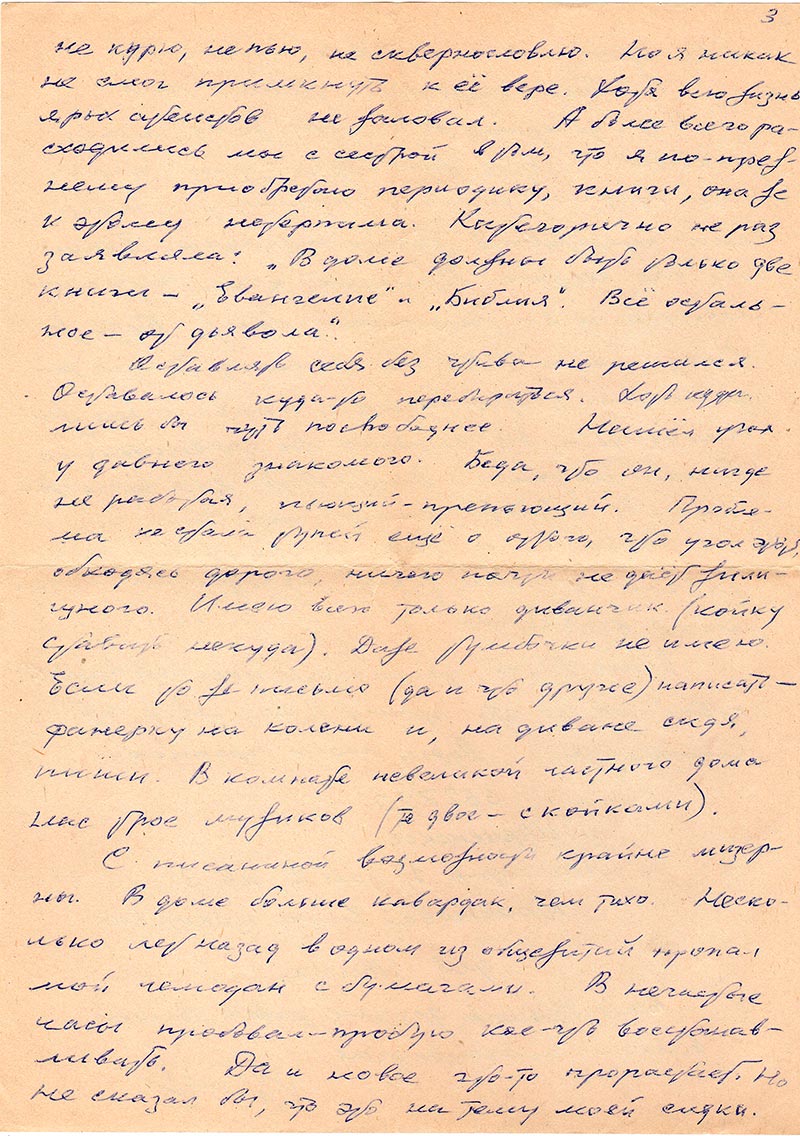 3
не курю, не пью, не сквернословлю. Но я никак
не смог примкнуть к её вере. Хотя всю жизнь
ярых атеистов не жаловал. А более всего ра-
сходились мы с сестрой в том, что я по-преж-
нему приобретаю периодику, книги, она же
к этому нетерпима. Категорично не раз
заявляла: „В доме должны быть только две
книги – „Евангелие" и „Библия". Всё осталь-
ное – от дьявола".
Оставлять себя без чтива не решился.
Оставалось куда-то перебираться. Хоть куда
лишь бы чуть посвободнее. Нашёл угол
у давнего знакомого. Беда, что он, нигде
не работая, пьющий-препьющий.
ещё о того, что угол этот,
обходясь дорого, ничего почти не даёт жили-
щного. Имею всего только диванчик (койку
ставить некуда). Даже тумбочки не имею.
Если то же письмо (да и что другое) написать –
фанерку на колени и, на диване сидя,
пиши. В комнате невеликой частного дома
нас трое мужиков (те двое – с койками).
С писаниной возможности крайне мизер-
ны. В доме больше кавардак, чем тихо. Неско-
лько лет назад в одном из общежитий пропал
мой чемодан с бумагами. В нечастые
часы пробывал-пробую кое-что восстанав-
ливать. Да и новое что-то прорастает. Но
не сказал бы, что это на тему моей сидки.